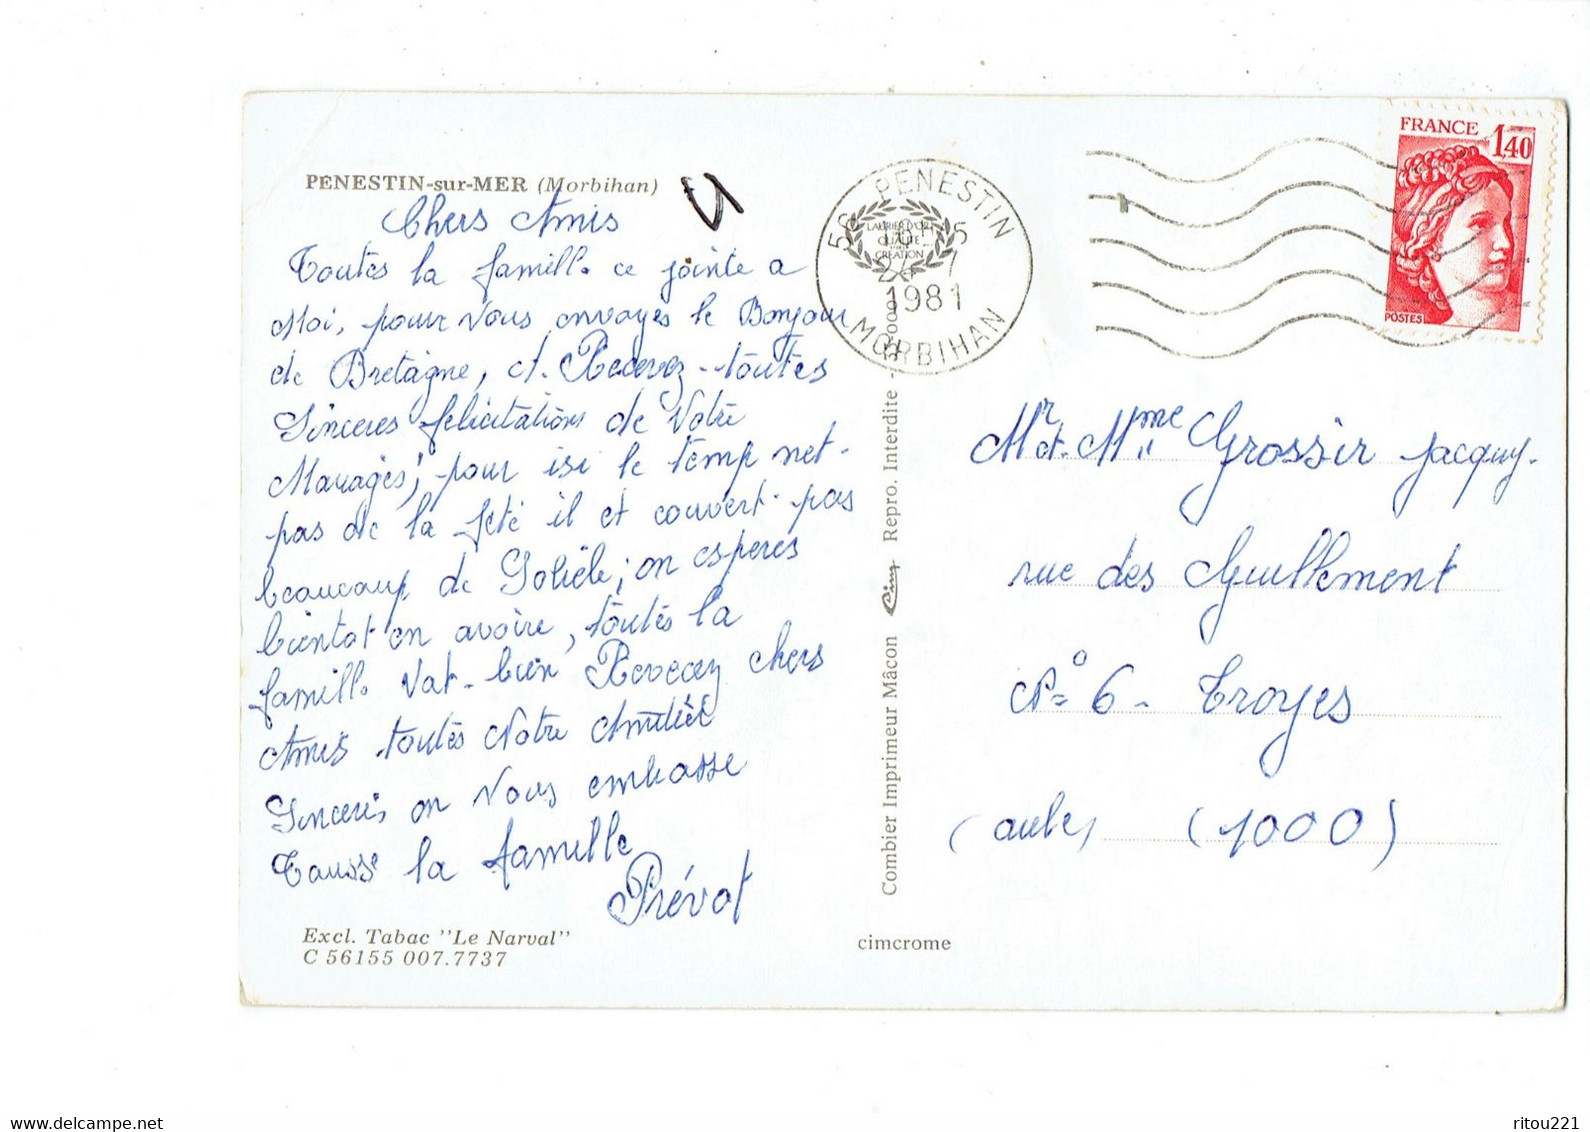 PENESTIN-sur-MER (Morbihan)
Chers Amis
Toutes la famill. ce jointe a
Moi, pour Vous envoyes le Bonjour
de Bretagne, et Recevez toutes
Sinceres felicitations de Votre
Mariages; pour isi le temp net-
pas de la fete il et couvert pas
beaucoup de Soliele; on esperes
bientot en avoire, toutes la
famill. Vat bien Revecez chers
Amis toutes Notre Amitiée
Sinceres on Vous embrasse
Tousse la famille
Prévot
Excl. Tabac "Le Narval"
C 56155 007.7737
Combier Imprimeur Mâcon Cim Repro. Interdite -
cimcrome
LAURIER D'OR
QUALITE
CREATION
56 PENESTIN
1981
MORBIHAN
FRANCE 1,40
POSTES
Mr et Mme Grossir jacquy.
rue des Guillement
N° 6 - Troyes
(aube) (1000)
delcampe.net
ritou221